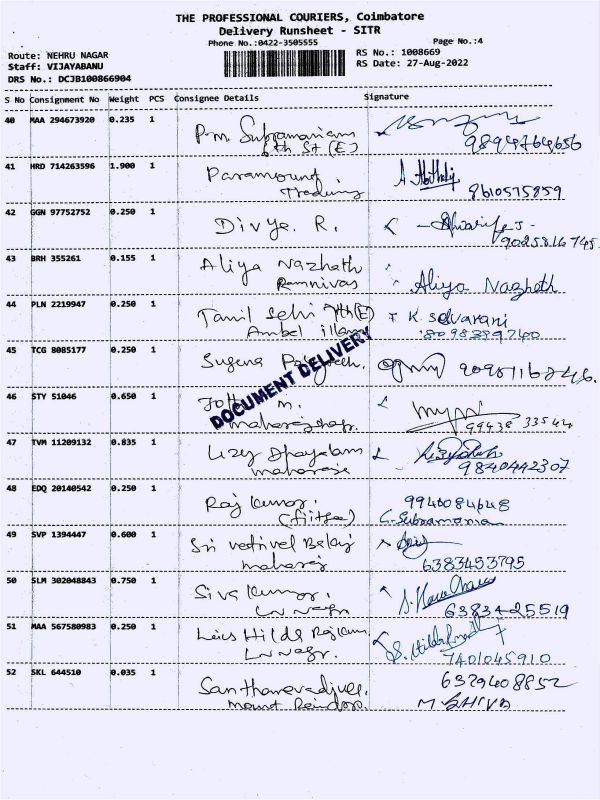 THE PROFESSIONAL COURIERS, Coimbatore
Delivery Runsheet - SITR
Phone No.:0422-3505555
Page No.:4
Route: NEHRU NAGAR
RS No.: 1008669
Staff: VIJAYABANU
RS Date: 27-Aug-2022
DRS No.: DCJB100866904
S No Consignment No Weight PCS Consignee Details Signature
40 MAA 294673920 0.235 1
6th St (E) 9894764656
41 HRD 714263596 1.900 1 Paramount
Trading 8610575859
42 GGN 97752752 0.250 1 Divya. R.
9025816745
43 BRH 355261 0.155 1 Aliya Nazhath
Ramnivas Aliya Nazhath
44 PLN 2219947 0.250 1 Tamil Selvi 7th (E) K. Selvarani
Ambal illam 8098389740
45 TCG 8085177 0.250 1 Sugena
DOCUMENT DELIVERY
46 STY 51046 0.650 1
99438 33544
47 TVM 11209132 0.835 1 Lizy
9840442307
48 EDQ 20140542 0.250 1 Raj Kumar. 9940084648
C. Subramania
49 SVP 1394447 0.600 1 Sri vetrivel Balaji
maharaj 6383453795
50 SLM 302048843 0.750 1 Siva Kumar.
LN Nagr 6383425519
51 MAA 567580983 0.250 1
LN Nagr. 7401045910
52 SKL 644510 0.035 1 6379408852
mount M. SHIVA